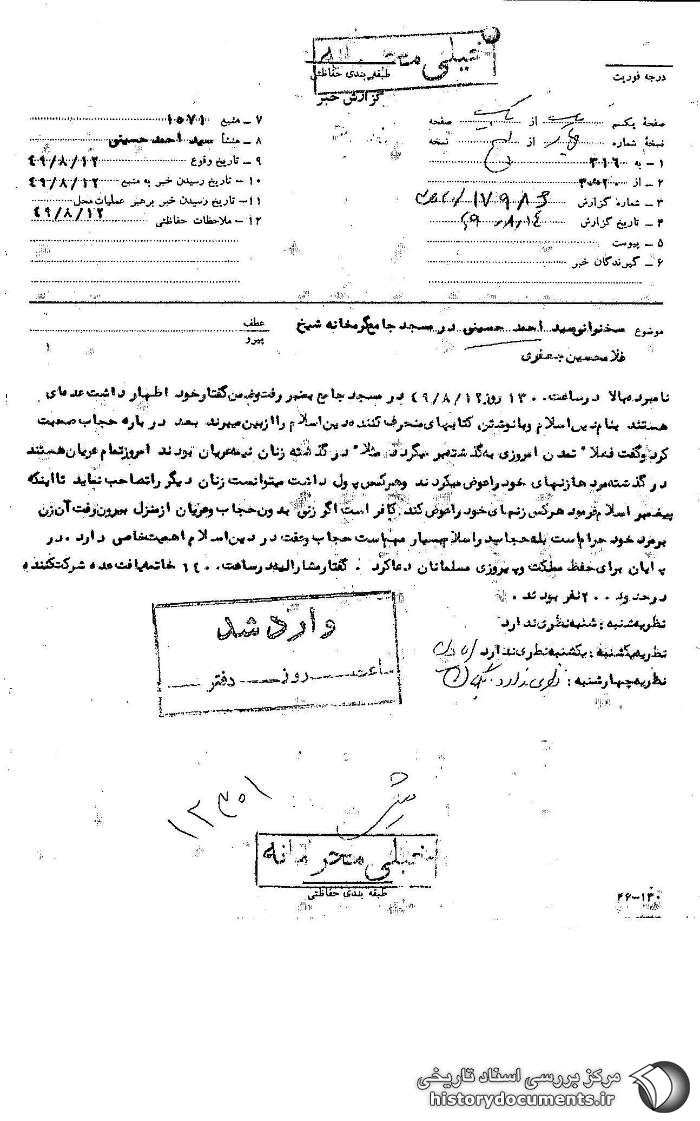 خیلی محرمانه
طبقه بندی حفاظتی
گزارش خبر
درجه فوریت
صفحهٔ یکم یک از یک صفحه
نسخهٔ شماره چهار از پنج نسخه
۱ ـ به ۳۱۶
۲ ـ از ۳۰ ه‍ ۲
۳ ـ شماره گزارش
۴ ـ تاریخ گزارش ۴۹٫۸٫۱۴
۵ ـ پیوست
۶ ـ گیرندگان خبر
۷ ـ منبع ۱۵۷۱
۸ ـ منشأ سید احمد حسینی
۹ ـ تاریخ وقوع ۴۹/۸/۱۲
۱۰ ـ تاریخ رسیدن خبر به منبع ۴۹/۸/۱۲
۱۱ ـ تاریخ رسیدن خبر برهبر عملیات محل ۴۹/۸/۱۲
۱۲ ـ ملاحظات حفاظتی
موضوع سخنرانی سید احمد حسینی در مسجد جامع گرمخانه شیخ غلامحسین جعفری
عطف
پیرو
نامبرده بالا در ساعت ۱۳۰۰ روز ۴۹/۸/۱۲ در مسجد جامع بمنبر رفت و ضمن گفتار خود اظهار داشت عده‌ای
هستند بنام دین اسلام و با نوشتن کتابهای منحرف کننده دین اسلام را از بین میبرند بعد در باره حجاب صحبت
کرد و گفت فعلاً تمدن امروزی به گذشته بر میگردد مثلاً در گذشته زنان نیمه عریان بودند امروز تمام عریان هستند
در گذشته مردها زنهای خود را عوض میکردند و هر کس پول داشت میتوانست زنان دیگر را تصاحب نماید تا اینکه
پیغمبر اسلام فرمود هر کس زنهای خود را عوض کند کافر است اگر زنی بدون حجاب و عریان از منزل بیرون رفت آن زن
بر مرد خود حرام است بله حجاب در اسلام بسیار مهم است حجاب و عفت در دین اسلام اهمیت خاصی دارد . در
پایان برای حفظ مملکت و پیروزی مسلمانان دعا کرد . گفتار مشارالیه در ساعت ۱۴۰۰ خاتمه یافت عده شرکت کننده
در حدود ۲۰۰ نفر بودند .
نظریه شنبه : شنبه نظری ندارد
نظریه یکشنبه : یکشنبه نظری ندارد
نظریه چهارشنبه : نظری ندارد
وارد شد
ساعت روز دفتر
۱۲۳۰۱
خیلی محرمانه
طبقه بندی حفاظتی
۲۶-۱۳۰
مرکز بررسی اسناد تاریخی
historydocuments.ir